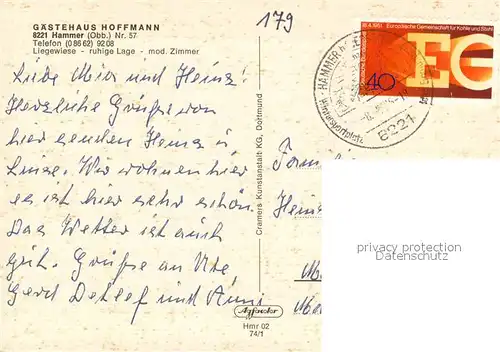 GÄSTEHAUS HOFFMANN
8221 Hammer (Obb.) Nr. 57
Telefon (08662) 9208
Liegewiese - ruhige Lage - mod. Zimmer
179
18.4.1951 Europäische Gemeinschaft für Kohle und Stahl
EG
40
HAMMER
8221
Liebe Mia und Heinz!
Herzliche Grüße von
hier senden Heinz u.
Luise. Wir wohnen hier
es ist hier sehr schön.
Das Wetter ist auch
gut. Grüße an Ute
Gerd Detlef und Anni
Cramers Kunstanstalt KG, Dortmund
Fam
Hein
privacy protection
Datenschutz
Hmr 02
74/1